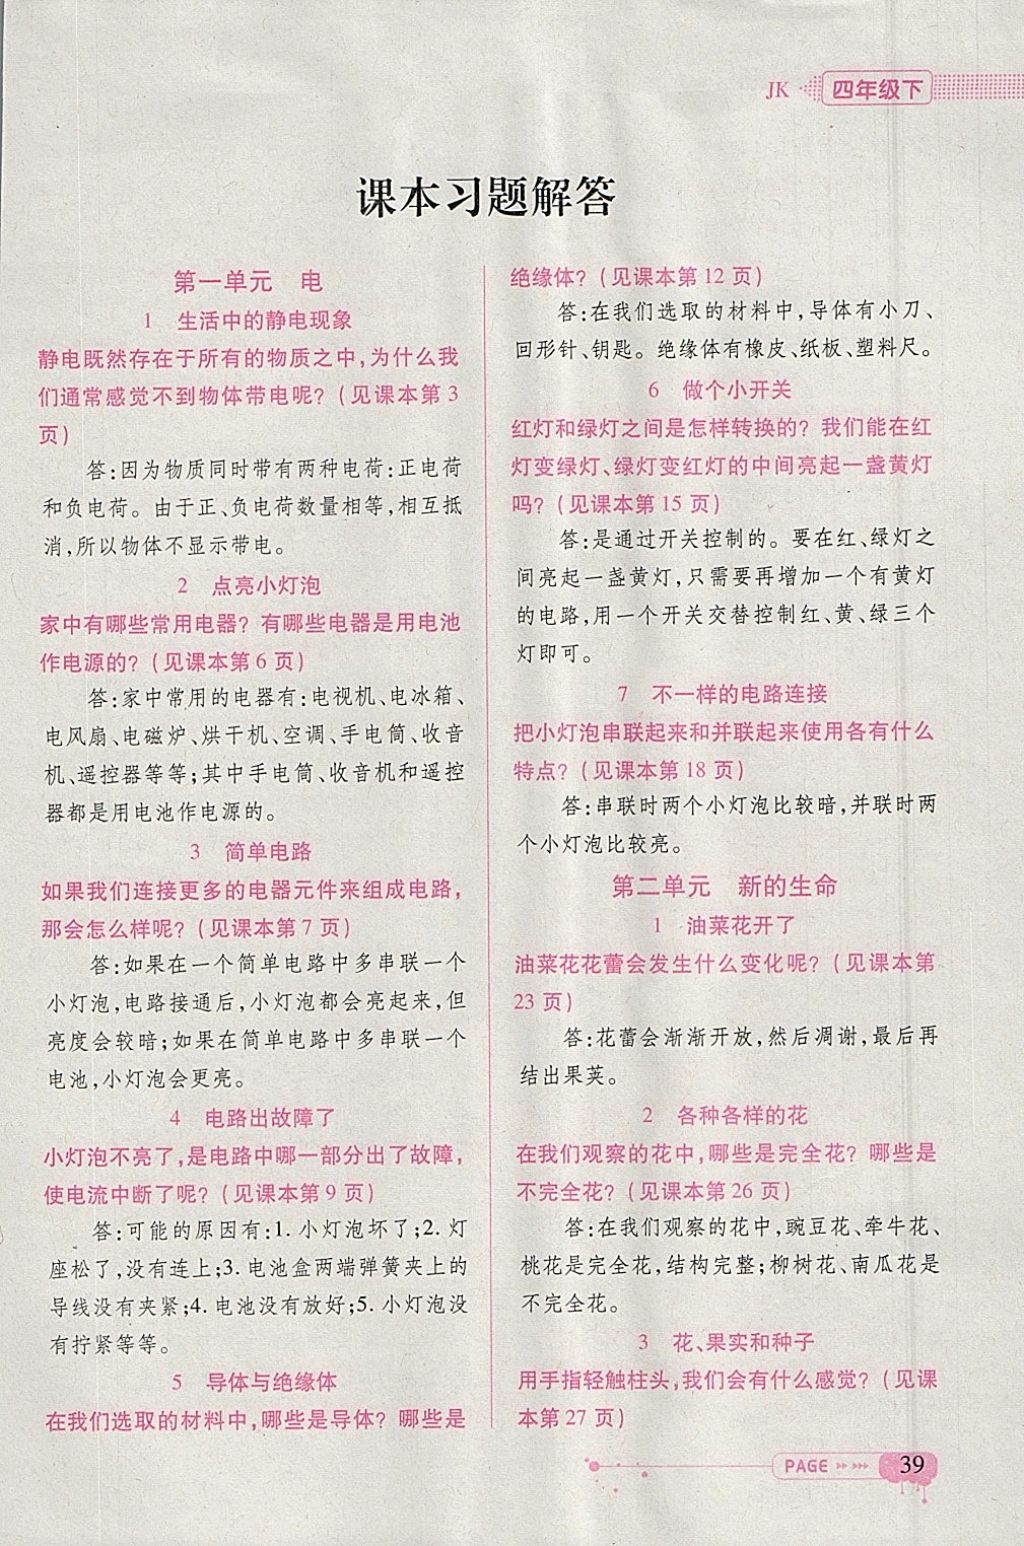 JK 四年级下
课本习题解答
第一单元 电
1 生活中的静电现象
静电既然存在于所有的物质之中,为什么我
们通常感觉不到物体带电呢?(见课本第 3
页)
答:因为物质同时带有两种电荷:正电荷
和负电荷。由于正、负电荷数量相等,相互抵
消,所以物体不显示带电。
2 点亮小灯泡
家中有哪些常用电器? 有哪些电器是用电池
作电源的?(见课本第 6 页)
答:家中常用的电器有:电视机、电冰箱、
电风扇、电磁炉、烘干机、空调、手电筒、收音
机、遥控器等等;其中手电筒、收音机和遥控
器都是用电池作电源的。
3 简单电路
如果我们连接更多的电器元件来组成电路,
那会怎么样呢?(见课本第 7 页)
答:如果在一个简单电路中多串联一个
小灯泡,电路接通后,小灯泡都会亮起来,但
亮度会较暗;如果在简单电路中多串联一个
电池,小灯泡会更亮。
4 电路出故障了
小灯泡不亮了,是电路中哪一部分出了故障,
使电流中断了呢?(见课本第 9 页)
答:可能的原因有:1. 小灯泡坏了;2. 灯
座松了,没有连上;3. 电池盒两端弹簧夹上的
导线没有夹紧;4. 电池没有放好;5. 小灯泡没
有拧紧等等。
5 导体与绝缘体
在我们选取的材料中,哪些是导体? 哪些是
绝缘体?(见课本第 12 页)
答:在我们选取的材料中,导体有小刀、
回形针、钥匙。绝缘体有橡皮、纸板、塑料尺。
6 做个小开关
红灯和绿灯之间是怎样转换的? 我们能在红
灯变绿灯、绿灯变红灯的中间亮起一盏黄灯
吗?(见课本第 15 页)
答:是通过开关控制的。要在红、绿灯之
间亮起一盏黄灯,只需要再增加一个有黄灯
的电路,用一个开关交替控制红、黄、绿三个
灯即可。
7 不一样的电路连接
把小灯泡串联起来和并联起来使用各有什么
特点?(见课本第 18 页)
答:串联时两个小灯泡比较暗,并联时两
个小灯泡比较亮。
第二单元 新的生命
1 油菜花开了
油菜花花蕾会发生什么变化呢?(见课本第
23 页)
答:花蕾会渐渐开放,然后凋谢,最后再
结出果荚。
2 各种各样的花
在我们观察的花中,哪些是完全花? 哪些是
不完全花?(见课本第 26 页)
答:在我们观察的花中,豌豆花、牵牛花、
桃花是完全花,结构完整;柳树花、南瓜花是
不完全花。
3 花、果实和种子
用手指轻触柱头,我们会有什么感觉?(见课
本第 27 页)
PAGE 39